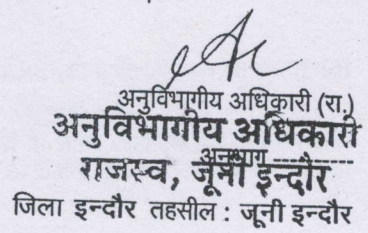 अनुविभागीय अधिकारी (रा.)
अनुविभागीय अधिकारी
अनुभाग ------------
राजस्व, जूनी इन्दौर
जिला इन्दौर तहसील : जूनी इन्दौर